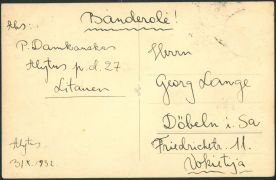 Banderolė!
Abs:
P. Damkauskas
Alytus p. d. 27
Litauen
Herrn
Georg Lange
Döbeln i. Sa
Friedrichstr. 11.
Vokietija
Alytus
3/X. 1932.